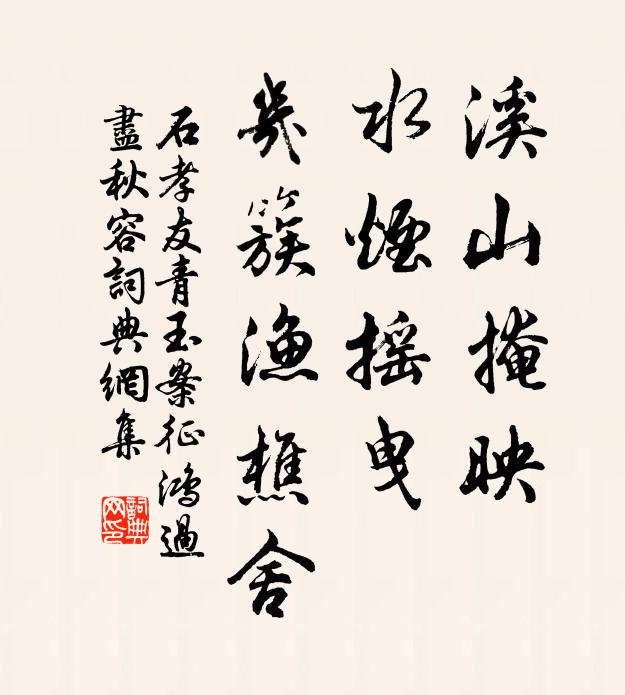 溪山掩映
水煙摇曳
幾簇漁樵舍
石孝友青玉案征鴻過
盡秋容詞典網集
詞典网印